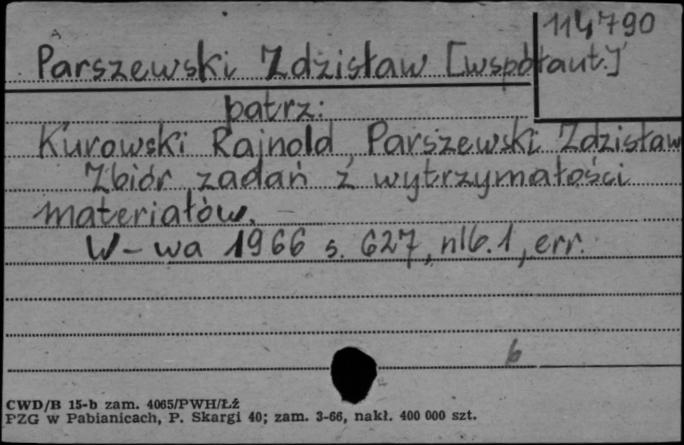 114790
Parszewski Zdzisław [współaut.]
patrz:
Kurowski Rajnold, Parszewski Zdzisław
Zbiór zadań z wytrzymałości
materiałów. -
W-wa 1966 s. 627, nlb. 1, err.
b
CWD/B 15-b zam. 4065/PWH/Łź
PZG w Pabianicach, P. Skargi 40; zam. 3-66, nakł. 400 000 szt.